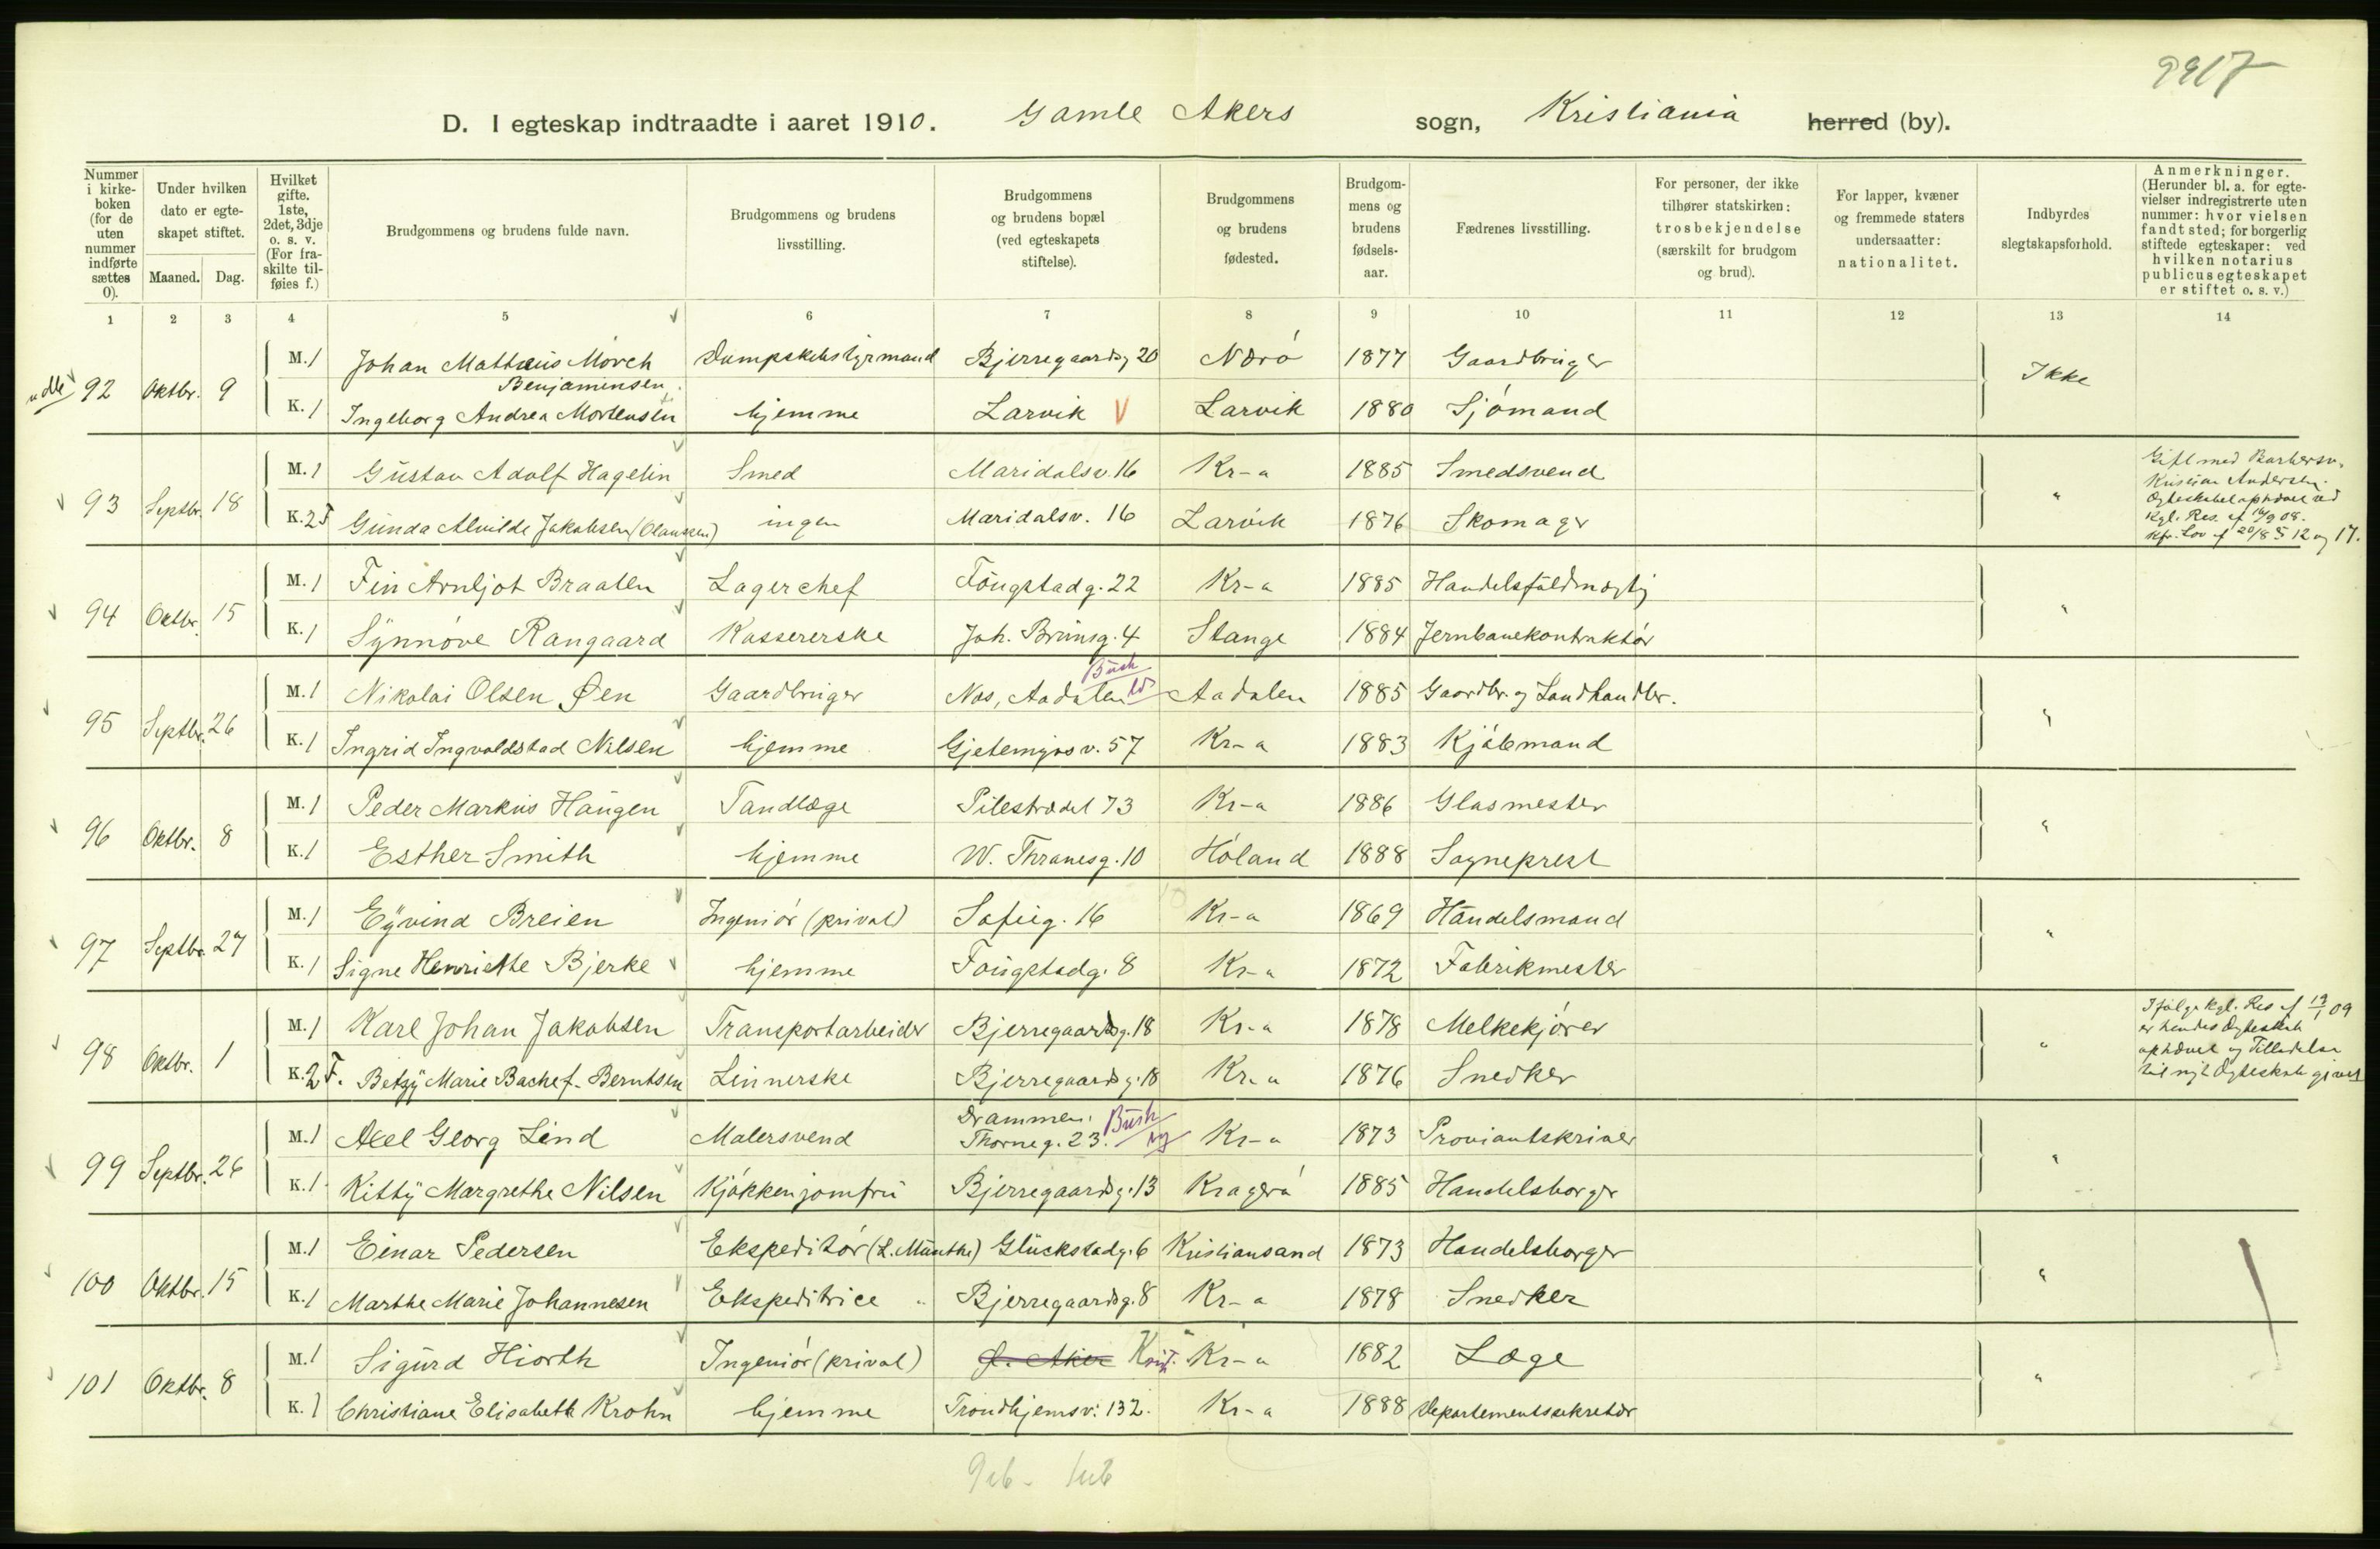 9917
D. I egteskap indtraadte i aaret 1910. Gamle Akers sogn, Kristiania herred (by).
Nummer i kirke-boken (for de uten nummer indførte sættes 0).
Under hvilken dato er egte-skapet stiftet.
Maaned. Dag.
Hvilket gifte. 1ste, 2det, 3dje o. s. v. (For fra-skilte til-føies f.)
Brudgommens og brudens fulde navn.
Brudgommens og brudens livsstilling.
Brudgommens og brudens bopæl (ved egteskapets stiftelse).
Brudgommens og brudens fødested.
Brudgom-mens og brudens fødsels-aar.
Fædrenes livsstilling.
For personer, der ikke tilhører statskirken: trosbekjendelse (særskilt for brudgom og brud).
For lapper, kvæner og fremmede staters undersaatter: nationalitet.
Indbyrdes slegtskapsforhold.
Anmerkninger. (Herunder bl. a. for egte-vielser indregistrerte uten nummer: hvor vielsen fandt sted; for borgerlig stiftede egteskaper: ved hvilken notarius publicus egteskapet er stiftet o. s. v.)
1 2 3 4 5 6 7 8 9 10 11 12 13 14
92 Oktbr. 9 M. 1 Johan Mathæus Mörch Dampskibsstyrmand Bjerregaardsg 20 Nærö 1877 Gaardbruger Ikke
Benjaminsen
K. 1 Ingeborg Andrea Mortensen hjemme Larvik Larvik 1880 Sjömand
93 Septbr. 18 M. 1 Gustav Adolf Hagelin Smed Maridalsv. 16 Kr-a 1885 Smedsvend "
K. 2 F Gunda Alvilde Jakobsen (Olaussen) ingen Maridalsv. 16 Larvik 1876 Skomager
Gift med Barbersv.
Kristian Andersen.
Ægteskabet ophævet ved
Kgl. Res. af 14/9 08.
Kfr. Lov af 20/8 § 12 og 17.
94 Octbr. 15 M. 1 Fin Arnljot Braaten Lagerchef Fougstadg. 22 Kr-a 1885 Handelsfuldmægtig "
K. 1 Synnöve Rangaard Kassererske Joh. Brunsg. 4 Stange 1884 Jernbanekontraktör
95 Septbr. 26 M. 1 Nikolai Olsen Øen Gaardbruger Nes, Aadalen Busk Aadalen 1885 Gaardbr. og Landhandler. "
K. 1 Ingrid Ingvaldstad Nilsen hjemme Gjetemyrsv. 57 Kr-a 1883 Kjöbmand
96 Oktbr. 8 M. 1 Peder Markus Haugen Tandlæge Pilestrædet 73 Kr-a 1886 Glasmester "
K. 1 Esther Smith hjemme W. Thranesg. 10 Höland 1888 Sogneprest
97 Septbr. 27 M. 1 Eyvind Breien Ingeniör (privat) Sofieg. 16 Kr-a 1869 Handelsmand "
K. 1 Signe Henriette Bjerke hjemme Fougstadg. 8 Kr-a 1872 Fabrikmester
98 Oktbr. 1 M. 1 Karl Johan Jakobsen Transportarbeider Bjerregaardsg. 18 Kr-a 1878 Melkekjörer "
K. 2 F. Betzy Marie Bache f. Berntsen Linnerske Bjerregaardsg. 18 Kr-a 1876 Snedker
Ifölge kgl. Res af 19/1 09
er hendes Ægteskab
ophævet og Tilladelse
til nyt Ægteskab givet
99 Septbr. 26 M. 1 Axel Georg Lind Malersvend Drammen. Thorneg. 23. Busk Kr-a 1873 Proviantskriver "
K. 1 Kitty Margrethe Nilsen Kjökkenjomfru Bjerregaardsg. 13 Kragerö 1885 Handelsborger
100 Oktbr. 15 M. 1 Einar Pedersen Ekspeditör (L. Munthe) Glückstadg. 6 Kristiansand 1873 Handelsborger "
K. 1 Marthe Marie Johannesen Ekspeditrice " Bjerregaardsg. 8 Kr-a 1878 Snedker
101 Oktbr. 8 M. 1 Sigurd Hiorth Ingeniör (privat) Gl. Aker Krist. Kr-a 1882 Læge "
K. 1 Christiane Elisabeth Krohn hjemme Trondhjemsv. 132. Kr-a 1888 Departementssekretær